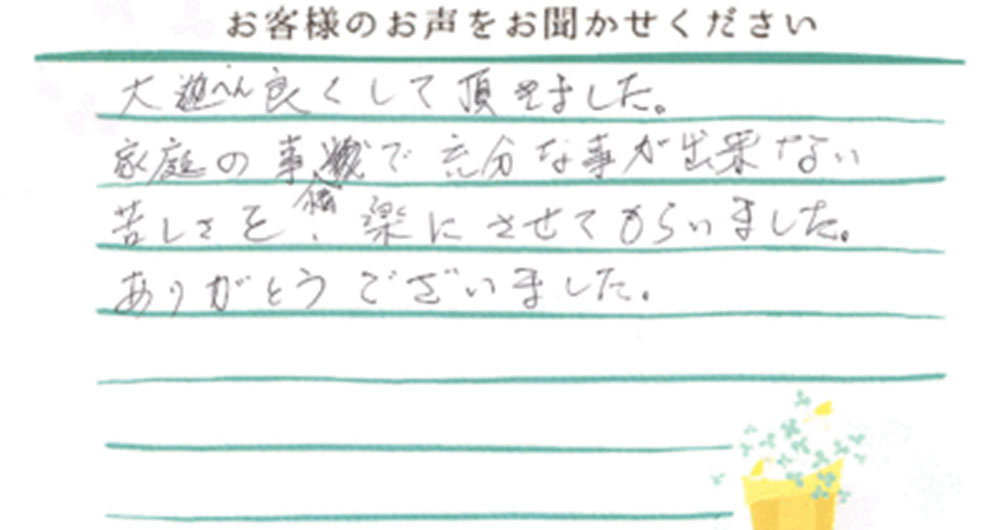 お客様のお声をお聞かせください
大へん良くして頂きました。
家庭の事情で充分な事が出来ない
苦しさを、楽にさせてもらいました。
ありがとうございました。